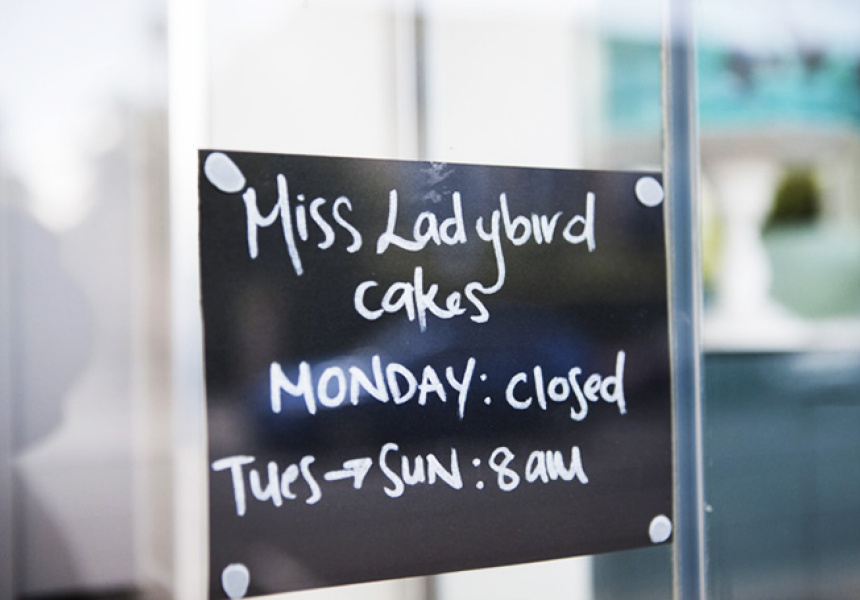 Miss Ladybird
cakes
MONDAY: closed
Tues → SUN: 8am